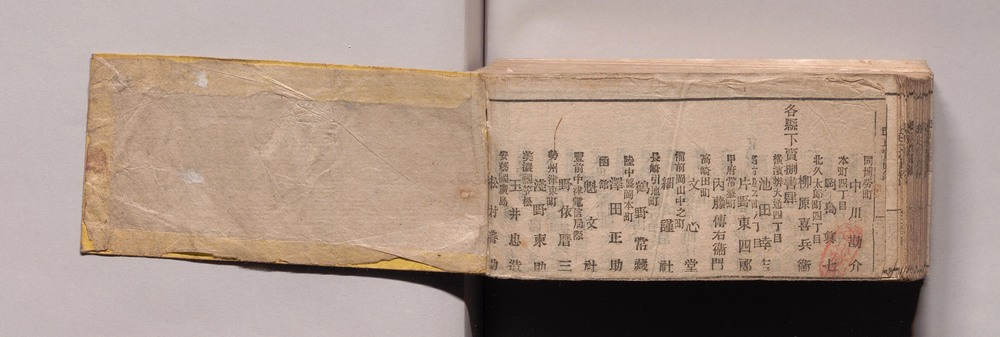 同博労町
中川勘介
本町四丁目
岡島真七
北久太郎町四丁目
柳原喜兵衛
各縣下賣捌書肆
横濱辨天通四丁目
池田幸
甲府常盤町
片野東四郎
内藤傳右衛門
高崎田町
文心堂
備前岡山中之町
細謹社
長崎引地町
鶴野常藏
陸中盛岡本町
澤田正助
函館
魁文社
豐前中津電信局際
野依暦三
勢州津東町
淺野東助
美濃國
玉井忠造
安藝國廣島
松村善助